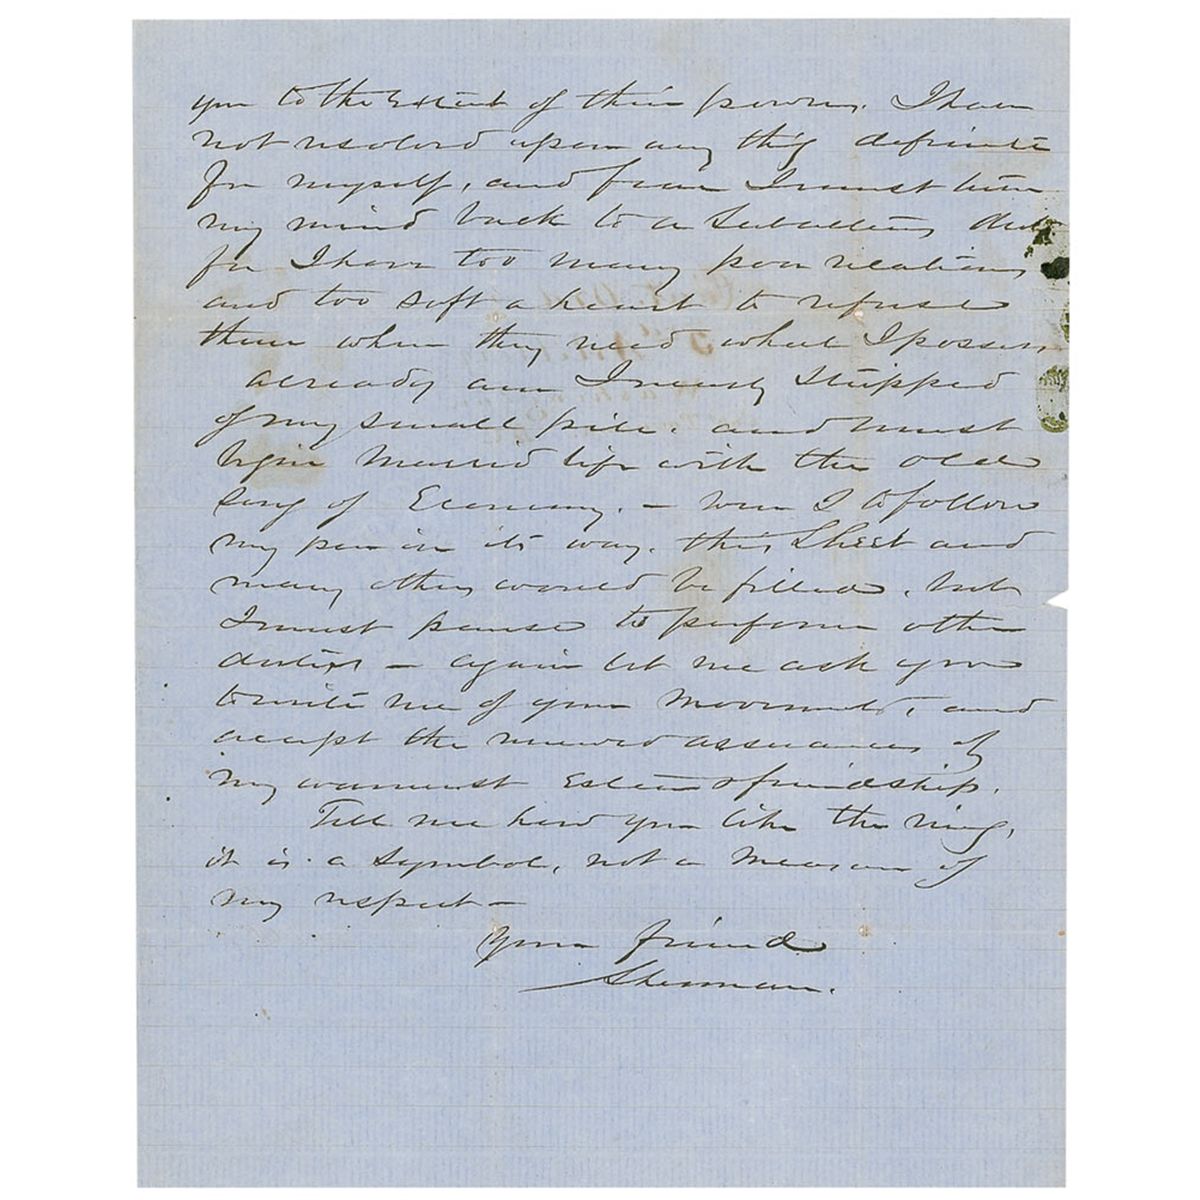 you to the Extent of their powers. I have
not resolved upon any thig definite
for myself, and fear I must turn
my mind back to a Subalterns duty
for I have too many poor relations
and too soft a heart to refuse
them when they need what I possess
already am I nearly stripped
of my small pile. and must
begin Married life with the old
song of Economy. — were I to follow
my pen in its way. this Sheet and
many others would be filled. but
I must pause to perform other
duties — again let me ask you
to write me of your movements, and
accept the renewed assurances of
my warmest Esteem & friendship.
Tell me how you like the ring,
it is a symbol, not a measure of
my respect —
Your friend
Sherman.